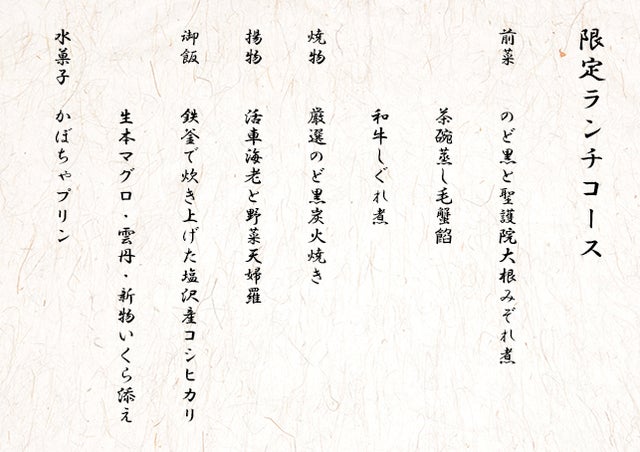 限定ランチコース
前菜 のど黒と聖護院大根みぞれ煮
茶碗蒸し毛蟹餡
和牛しぐれ煮
焼物 厳選のど黒炭火焼き
揚物 活車海老と野菜天婦羅
御飯 鉄釜で炊き上げた塩沢産コシヒカリ
生本マグロ・雲丹・新物いくら添え
水菓子 かぼちゃプリン